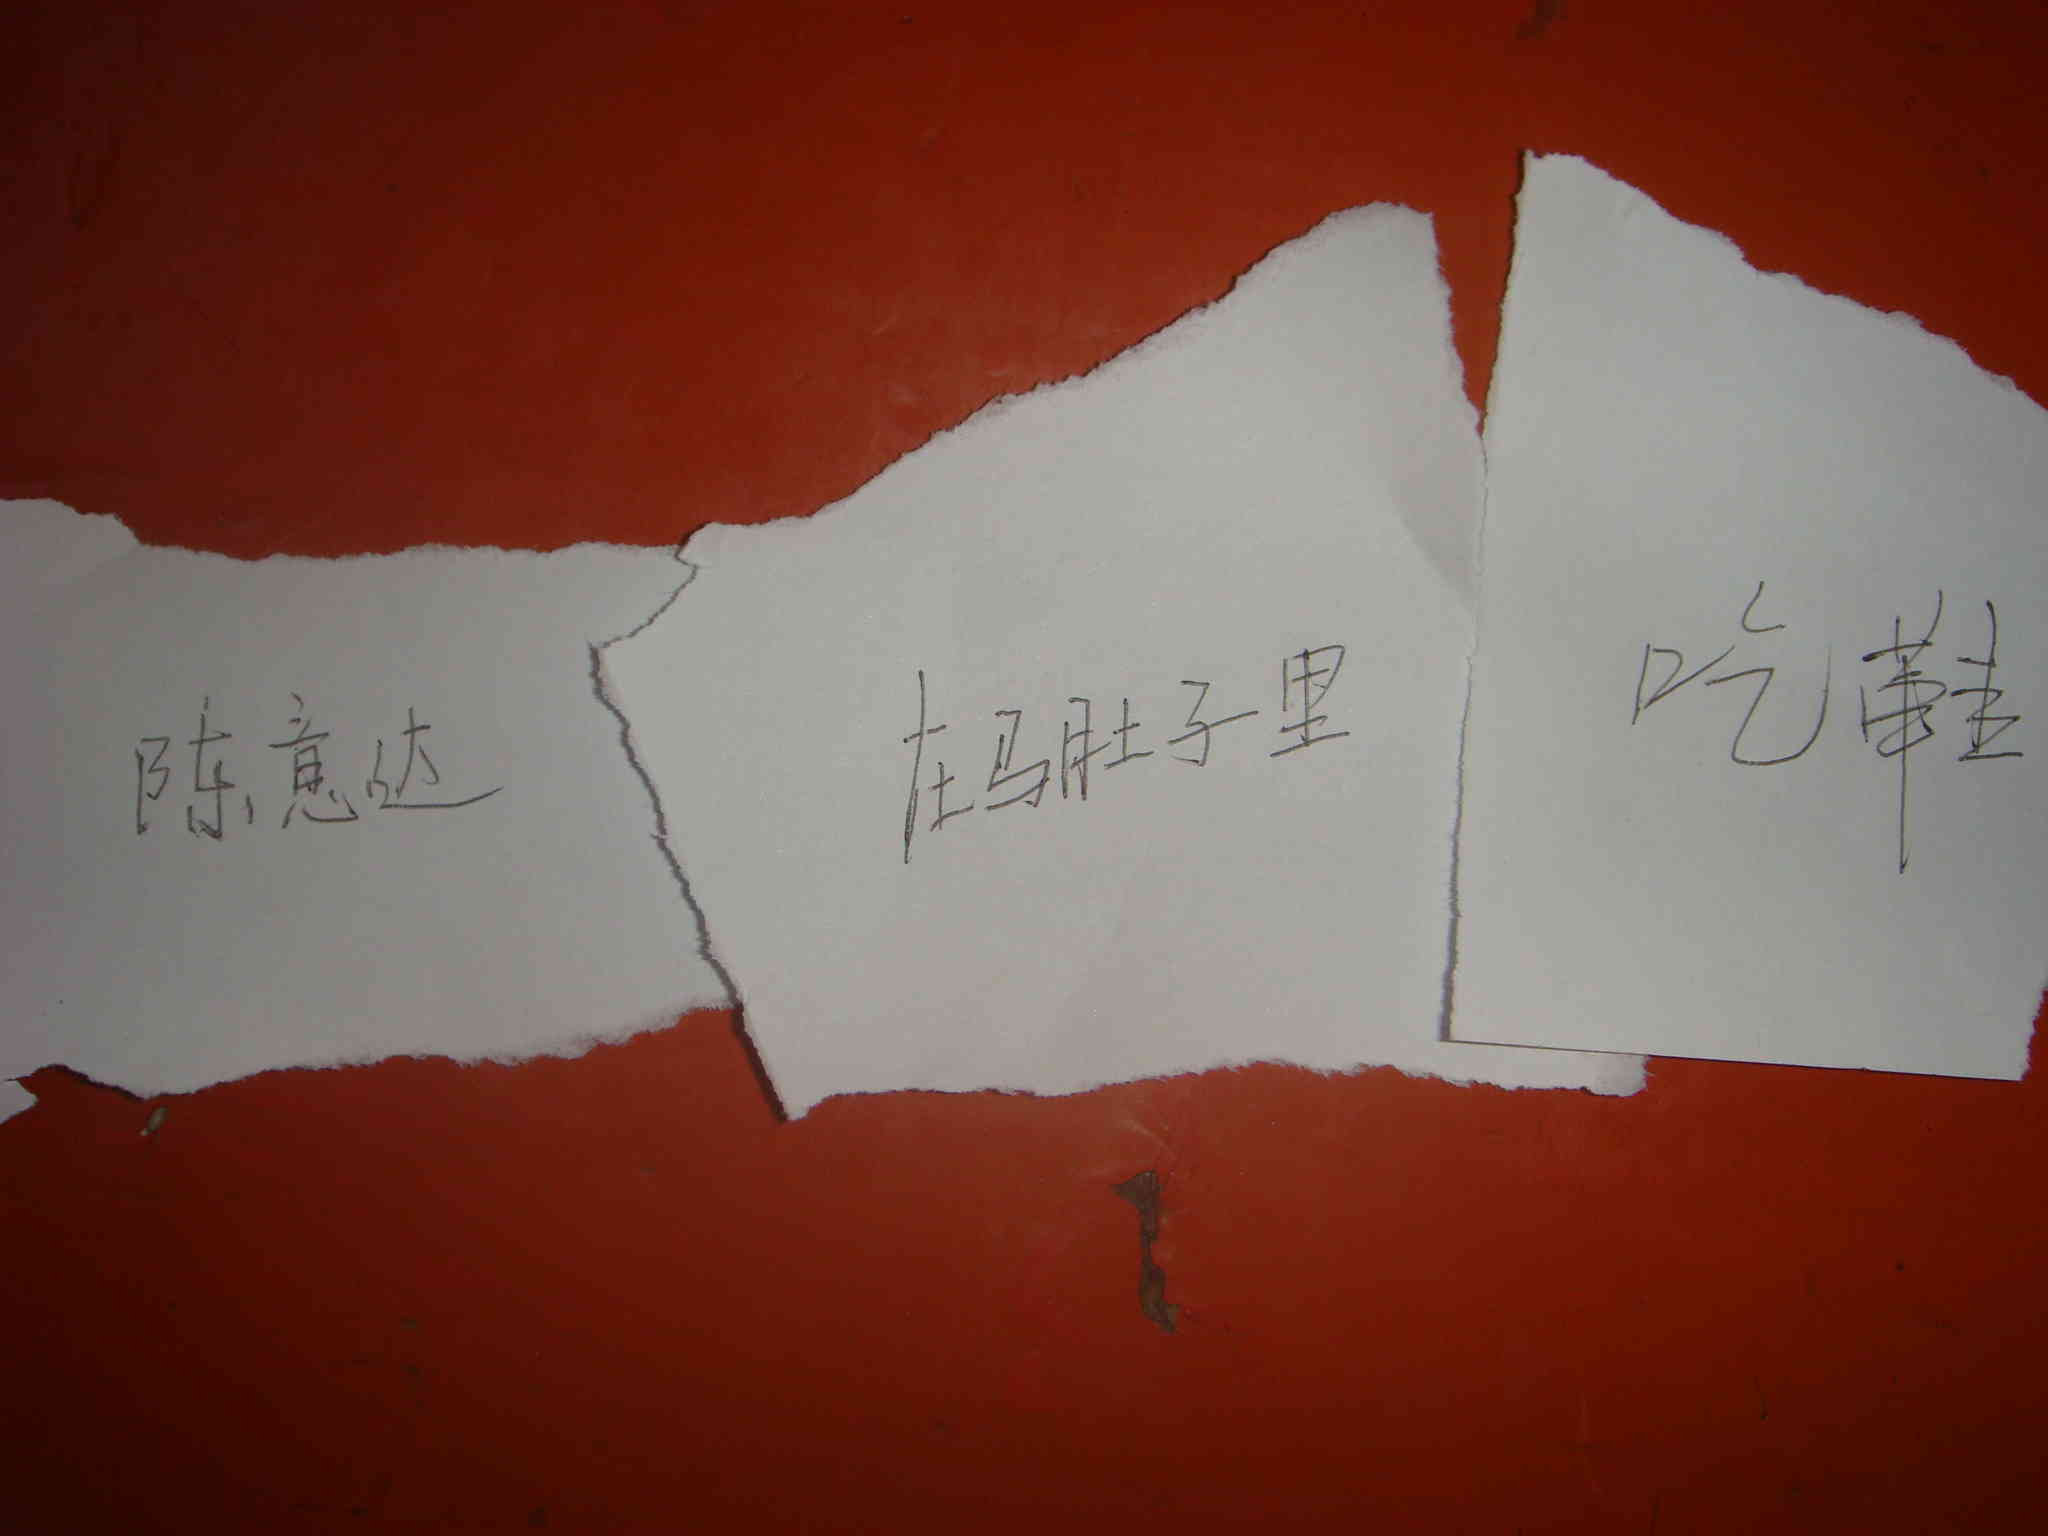 陈意达 在马肚子里 吃鞋